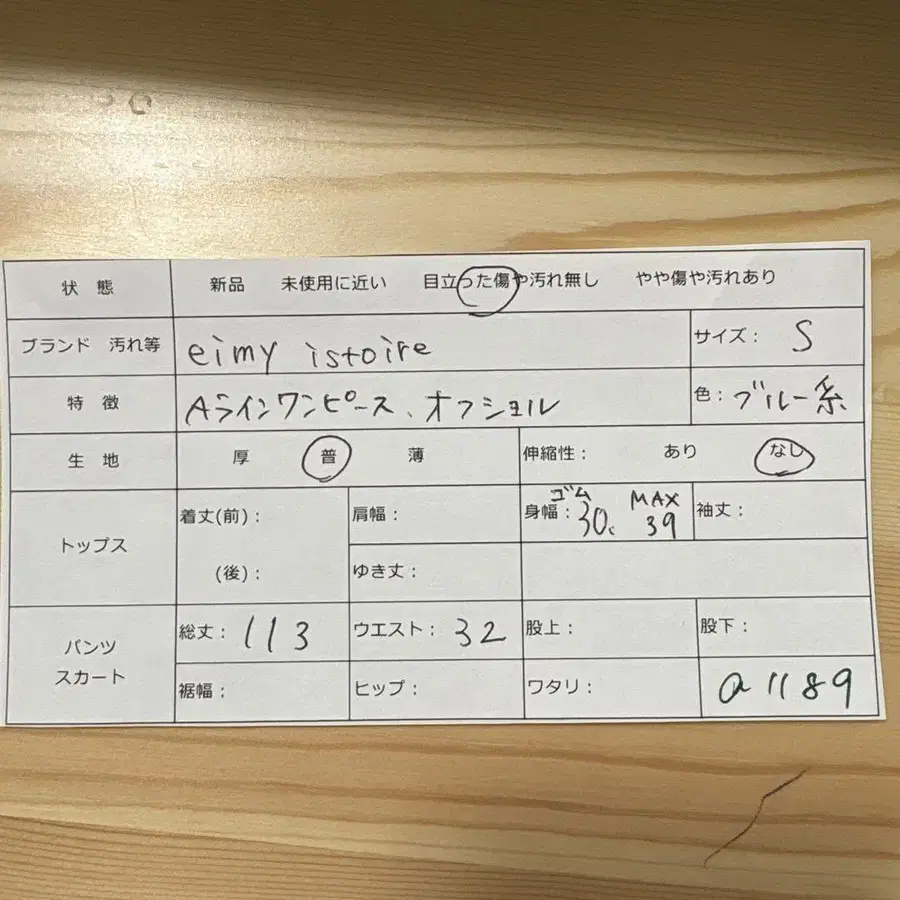 状 態 新品 未使用に近い 目立った傷や汚れ無し やや傷や汚れあり
ブランド 汚れ等 eimy istoire サイズ: S
特 徴 Aラインワンピース、オフショル 色: ブルー系
生 地 厚 普 薄 伸縮性: あり なし
トップス 着丈(前): 肩幅: 身幅: ゴム 30c MAX 39 袖丈:
(後): ゆき丈:
パンツ スカート 総丈: 113 ウエスト: 32 股上: 股下:
裾幅: ヒップ: ワタリ: a1189